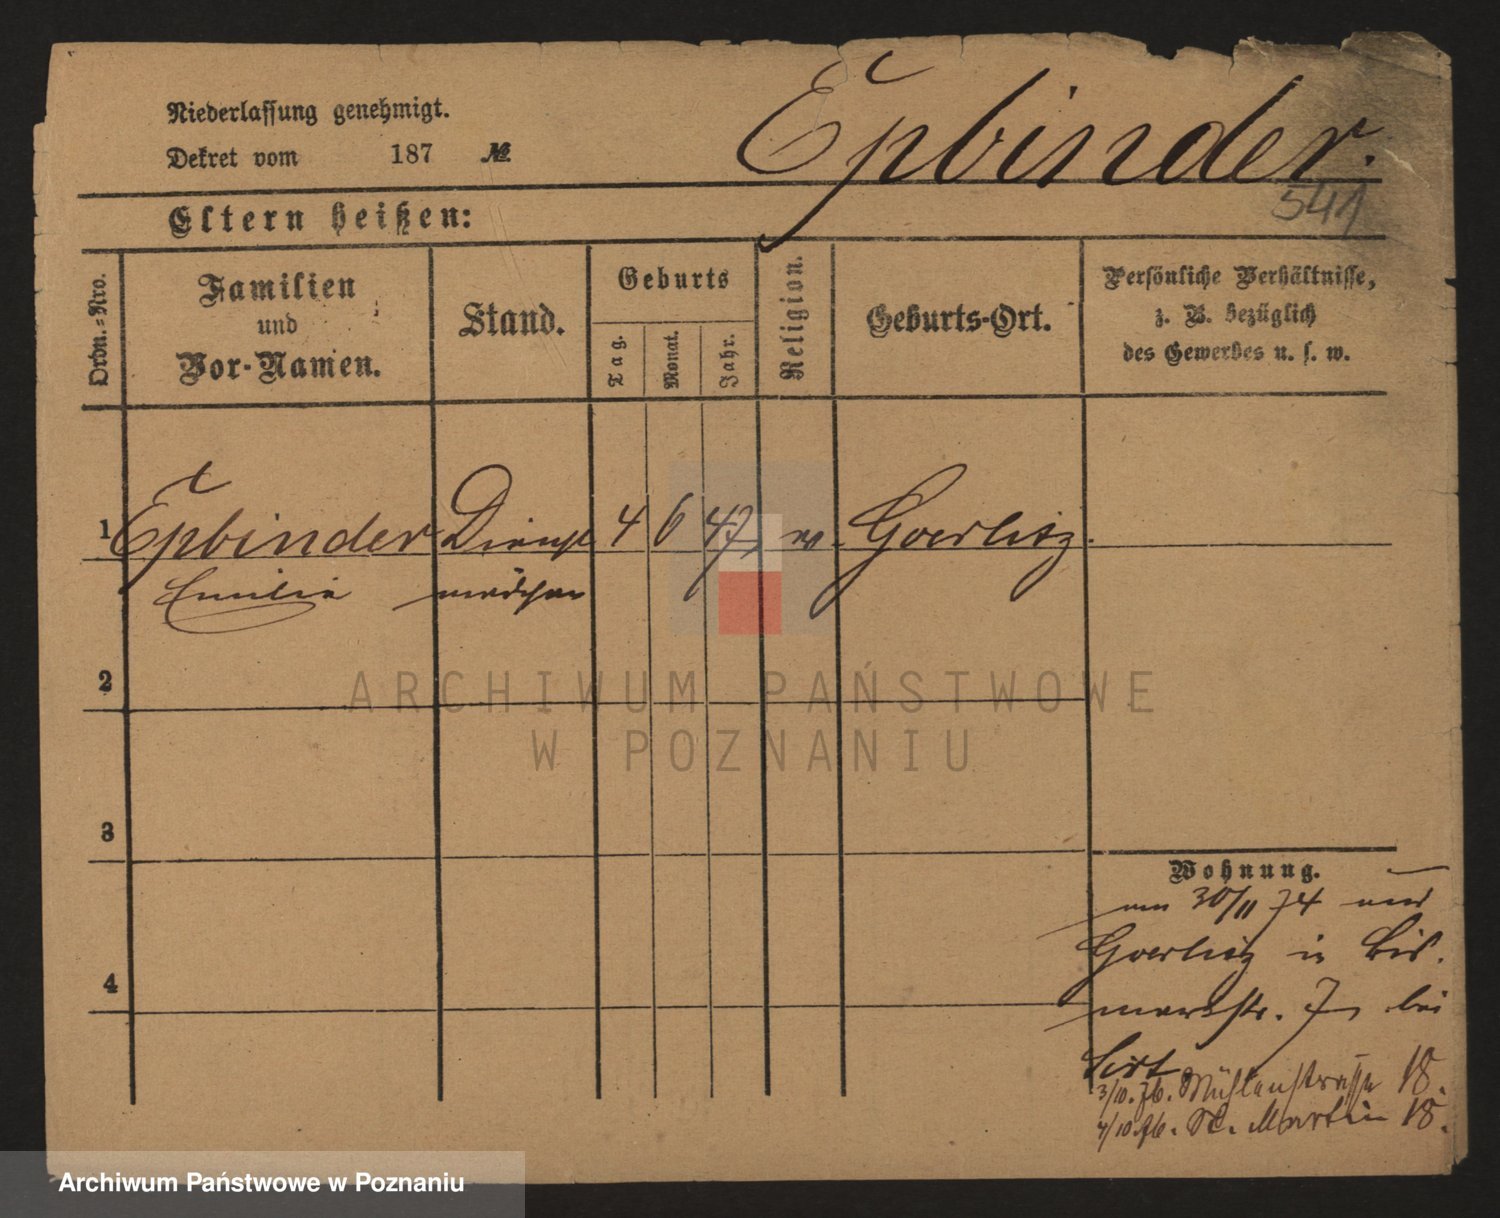 Niederlassung genehmigt.
Dekret vom 187 №
Epbinder.
541
Eltern heißen:
Ordn.-Nro.
Familien
und
Vor-Namen.
Stand.
Geburts
Tag.
Monat.
Jahr.
Religion.
Geburts-Ort.
Persönliche Verhältnisse,
z. B. bezüglich
des Gewerbes u. s. w.
1 Epbinder Dienst 4 6 47 Goerlitz.
Emilie mädchen
2
3
4
Wohnung.
30/11 74
Goerlitz in Bis.
markstr. 7 bei
3/10. 76. Mühlenstrasse 18.
4/10 76. St. Martin 18.
ARCHIWUM PAŃSTWOWE
W POZNANIU
Archiwum Państwowe w Poznaniu